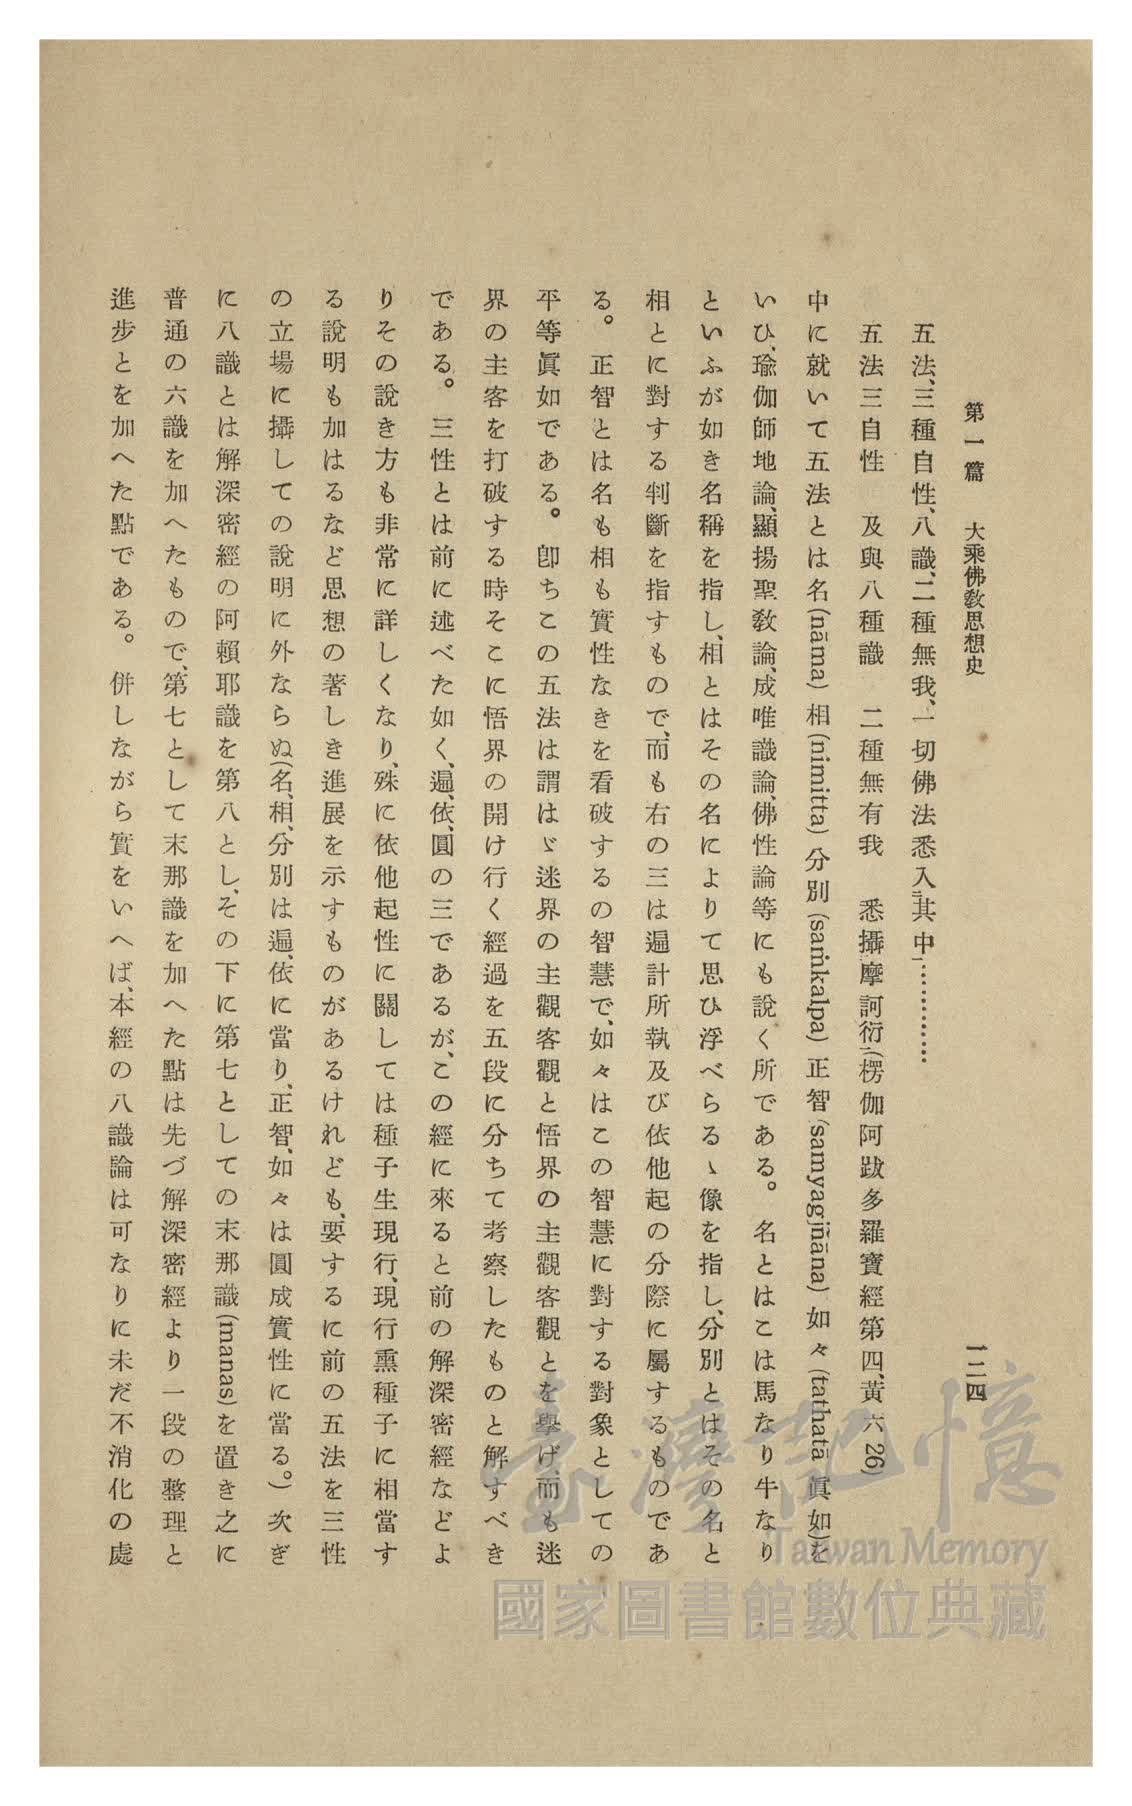 第一篇　大乘佛敎思想史　一二四
五法、三種自性、八識、二種無我、一切佛法悉入二其中一…………
五法三自性　及與八種識　二種無有我　悉攝摩訶衍二(楞伽阿跋多羅寶經第四、黃六26)
中に就いて五法とは名(nāma)相(nimitta)分別(saṁkalpa)正智(samyagjñāna)如々(tathatā眞如)を
いひ、瑜伽師地論、顯揚聖敎論、成唯識論、佛性論等にも說く所である。名とはこは馬なり牛なり
といふが如き名稱を指し、相とはその名によりて思ひ浮べらるゝ像を指し、分別とはその名と
相とに對する判斷を指すもので、而も右の三は遍計所執及び依他起の分際に屬するものであ
る。正智とは名も相も實性なきを看破するの智慧で、如々はこの智慧に對する對象としての
平等眞如である。卽ちこの五法は謂はゞ迷界の主觀客觀と悟界の主觀客觀とを擧げ、而も迷
界の主客を打破する時そこに悟界の開け行く經過を五段に分ちて考察したものと解すべき
である。三性とは前に述べた如く、遍、依、圓の三であるが、この經に來ると前の解深密經などよ
りその說き方も非常に詳しくなり、殊に依他起性に關しては種子生現行、現行熏種子に相當す
る說明も加はるなど思想の著しき進展を示すものがあるけれども、要するに前の五法を三性
の立場に攝しての說明に外ならぬ(名、相、分別は遍、依に當り、正智、如々は圓成實性に當る。)次ぎ
に八識とは解深密經の阿賴耶識を第八とし、その下に第七としての末那識(manas)を置き之に
普通の六識を加へたもので、第七として末那識を加へた點は先づ解深密經より一段の整理と
進步とを加へた點である。併しながら實をいへば、本經の八識論は可なりに未だ不消化の處
臺灣記憶
Taiwan Memory
國家圖書館數位典藏